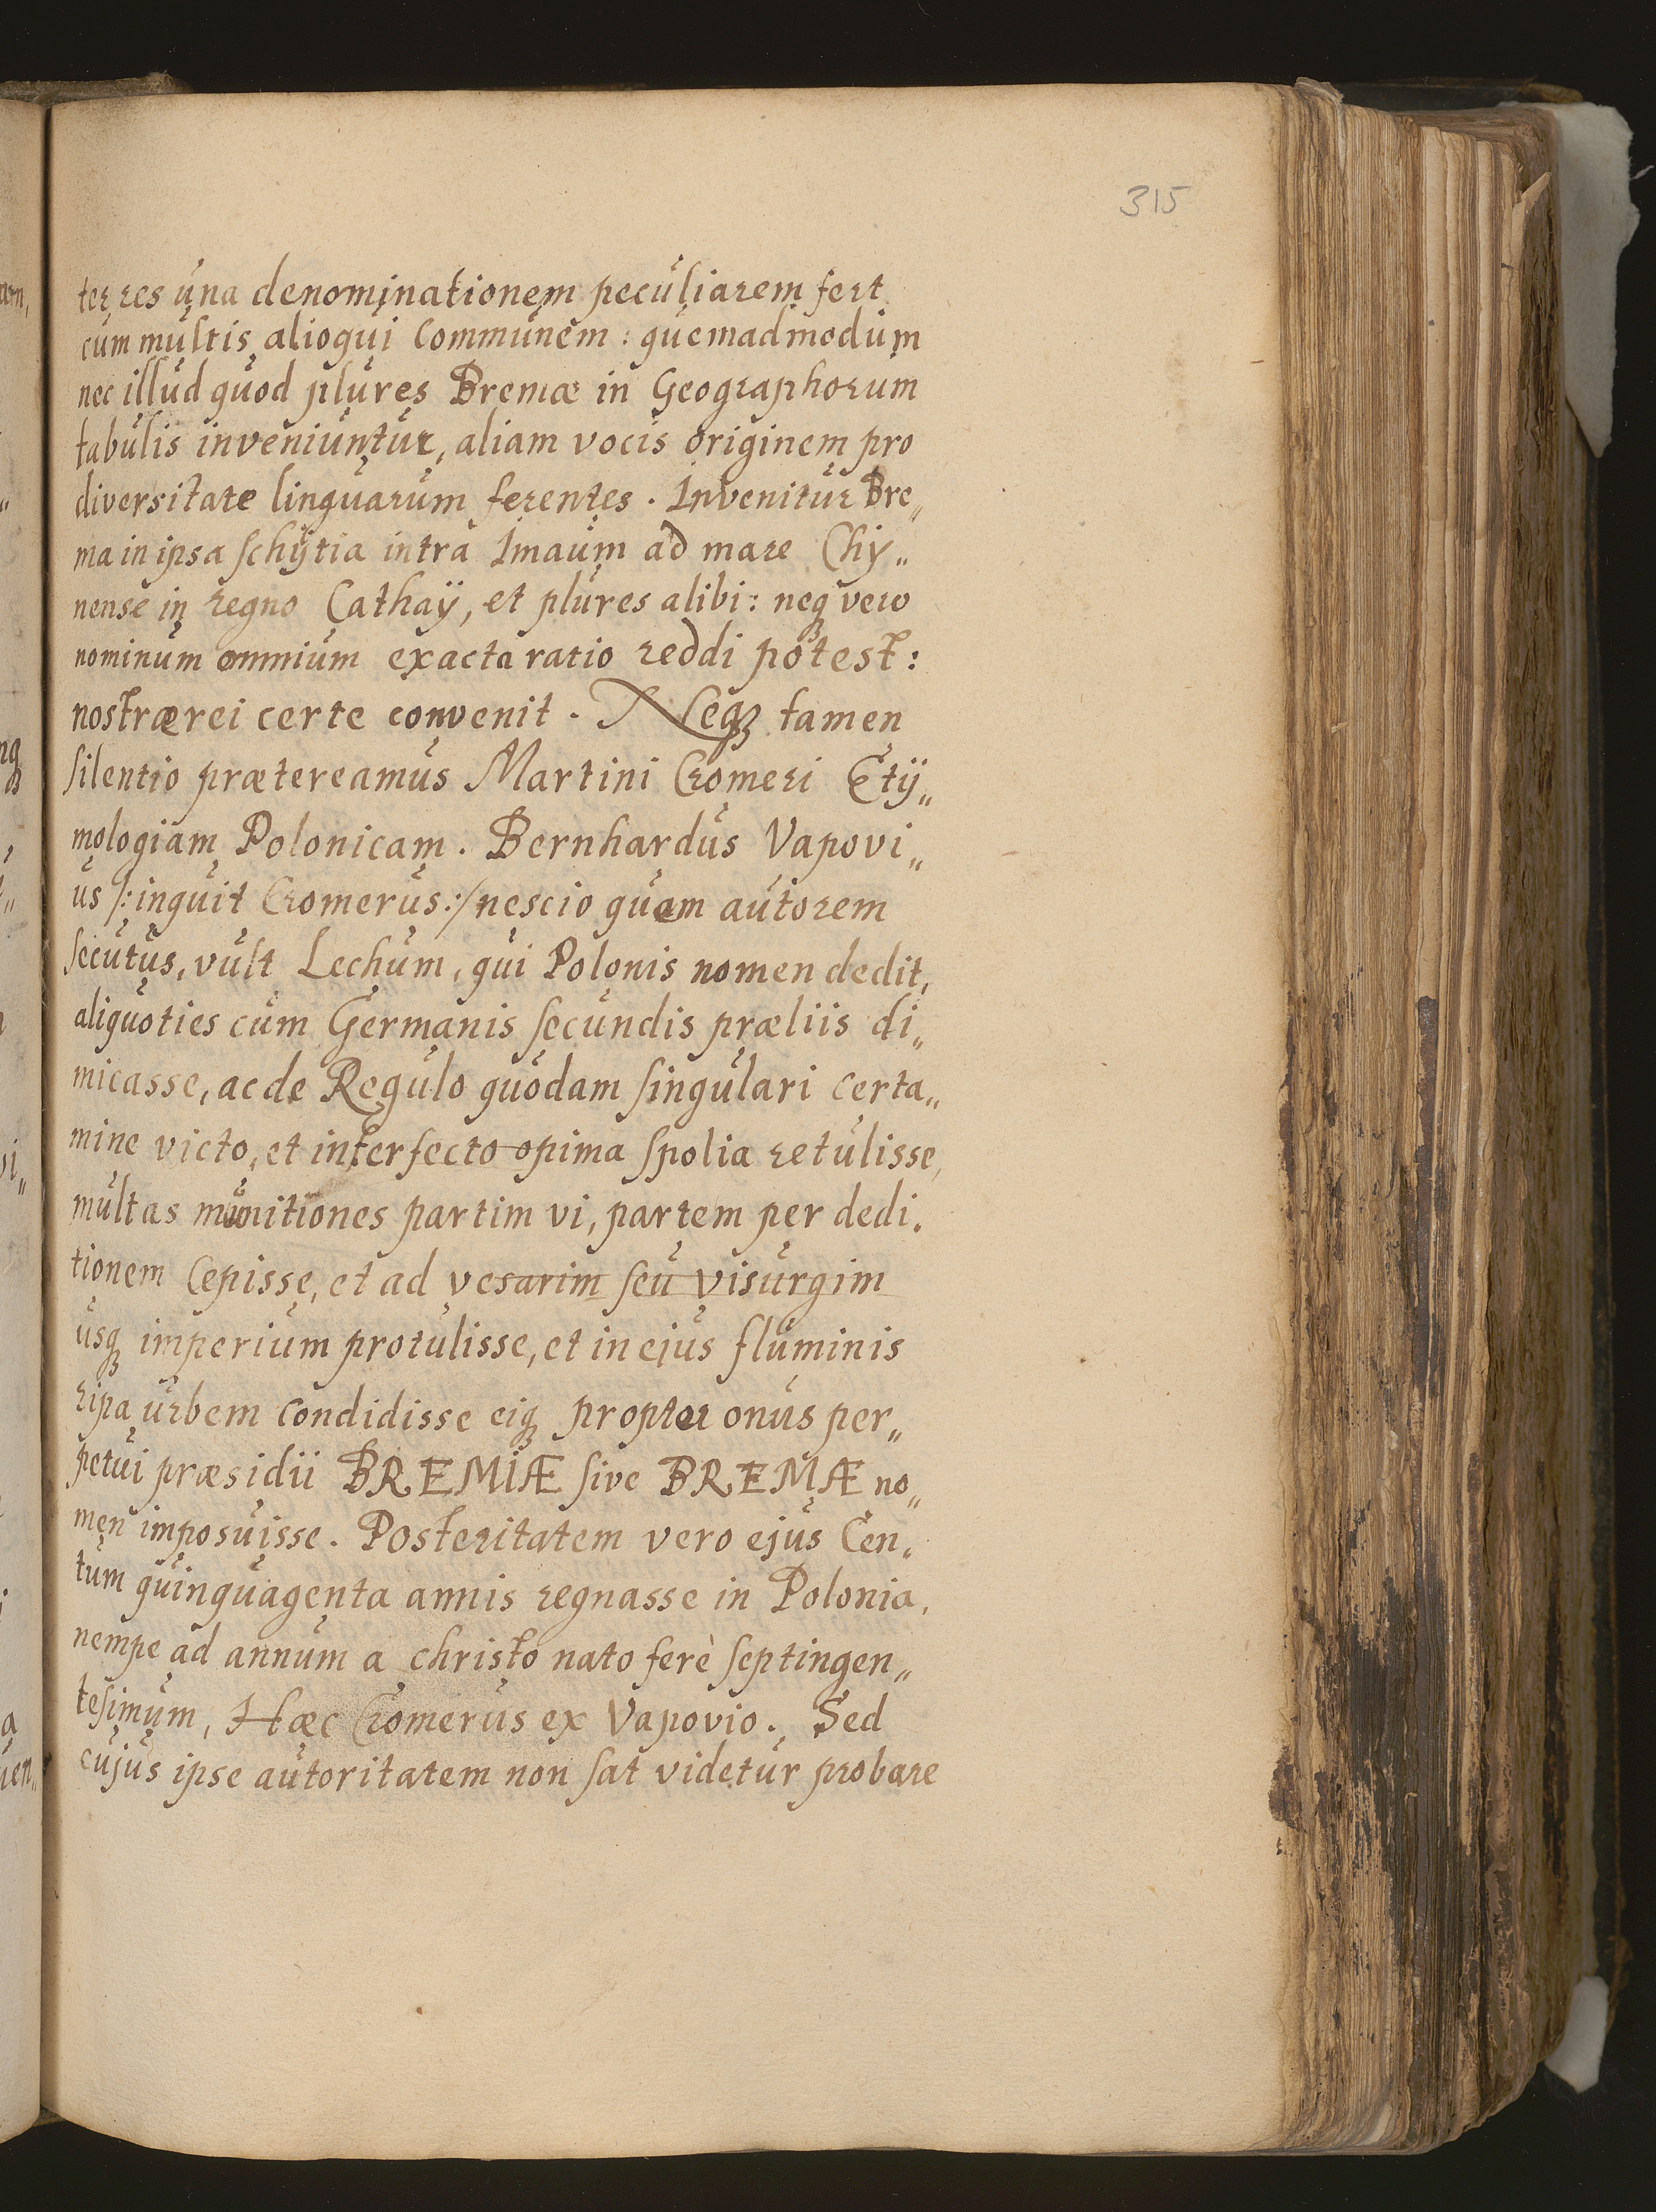 315
ter res una denominationem peculiarem fert
cum multis alioqui communem: quemadmodum
nec illud quod plures Bremæ in Geographorum
tabulis inveniuntur, aliam vocis originem pro
diversitate linguarum ferentes. Invenitur Bre„
ma in ipsa schÿtia intra Imaum ad mare Chy„
nense in regno Cathaÿ, et plures alibi: neqꝫ vero
nominum omnium exacta ratio reddi potest:
nostræ rei certe convenit. Neqꝫ tamen
silentio prætereamus Martini Cromeri Etÿ„
mologiam Polonicam. Bernhardus Vapovi„
us /: inquit Cromerus :/ nescio quem autorem
secutus, vult Lechum, qui Polonis nomen dedit,
aliquoties cum Germanis secundis præliis di„
micasse, ac de Regulo quodam singulari certa„
mine victo, et interfecto opima spolia retulisse,
multas munitiones partim vi, partem per dedi.
tionem cepisse, et ad vesarim seu visurgim
usqꝫ imperium protulisse, et in ejus fluminis
ripa urbem condidisse eiqꝫ propter onus per„
petui præsidii BREMIÆ sive BREMÆ no„
men imposuisse. Posteritatem vero ejus Cen.
tum quinquagenta annis regnasse in Polonia,
nempe ad annum a christo nato ferè septingen„
tesimum, Hæc Cromerus ex Vapovio. Sed
cujus ipse autoritatem non sat videtur probare